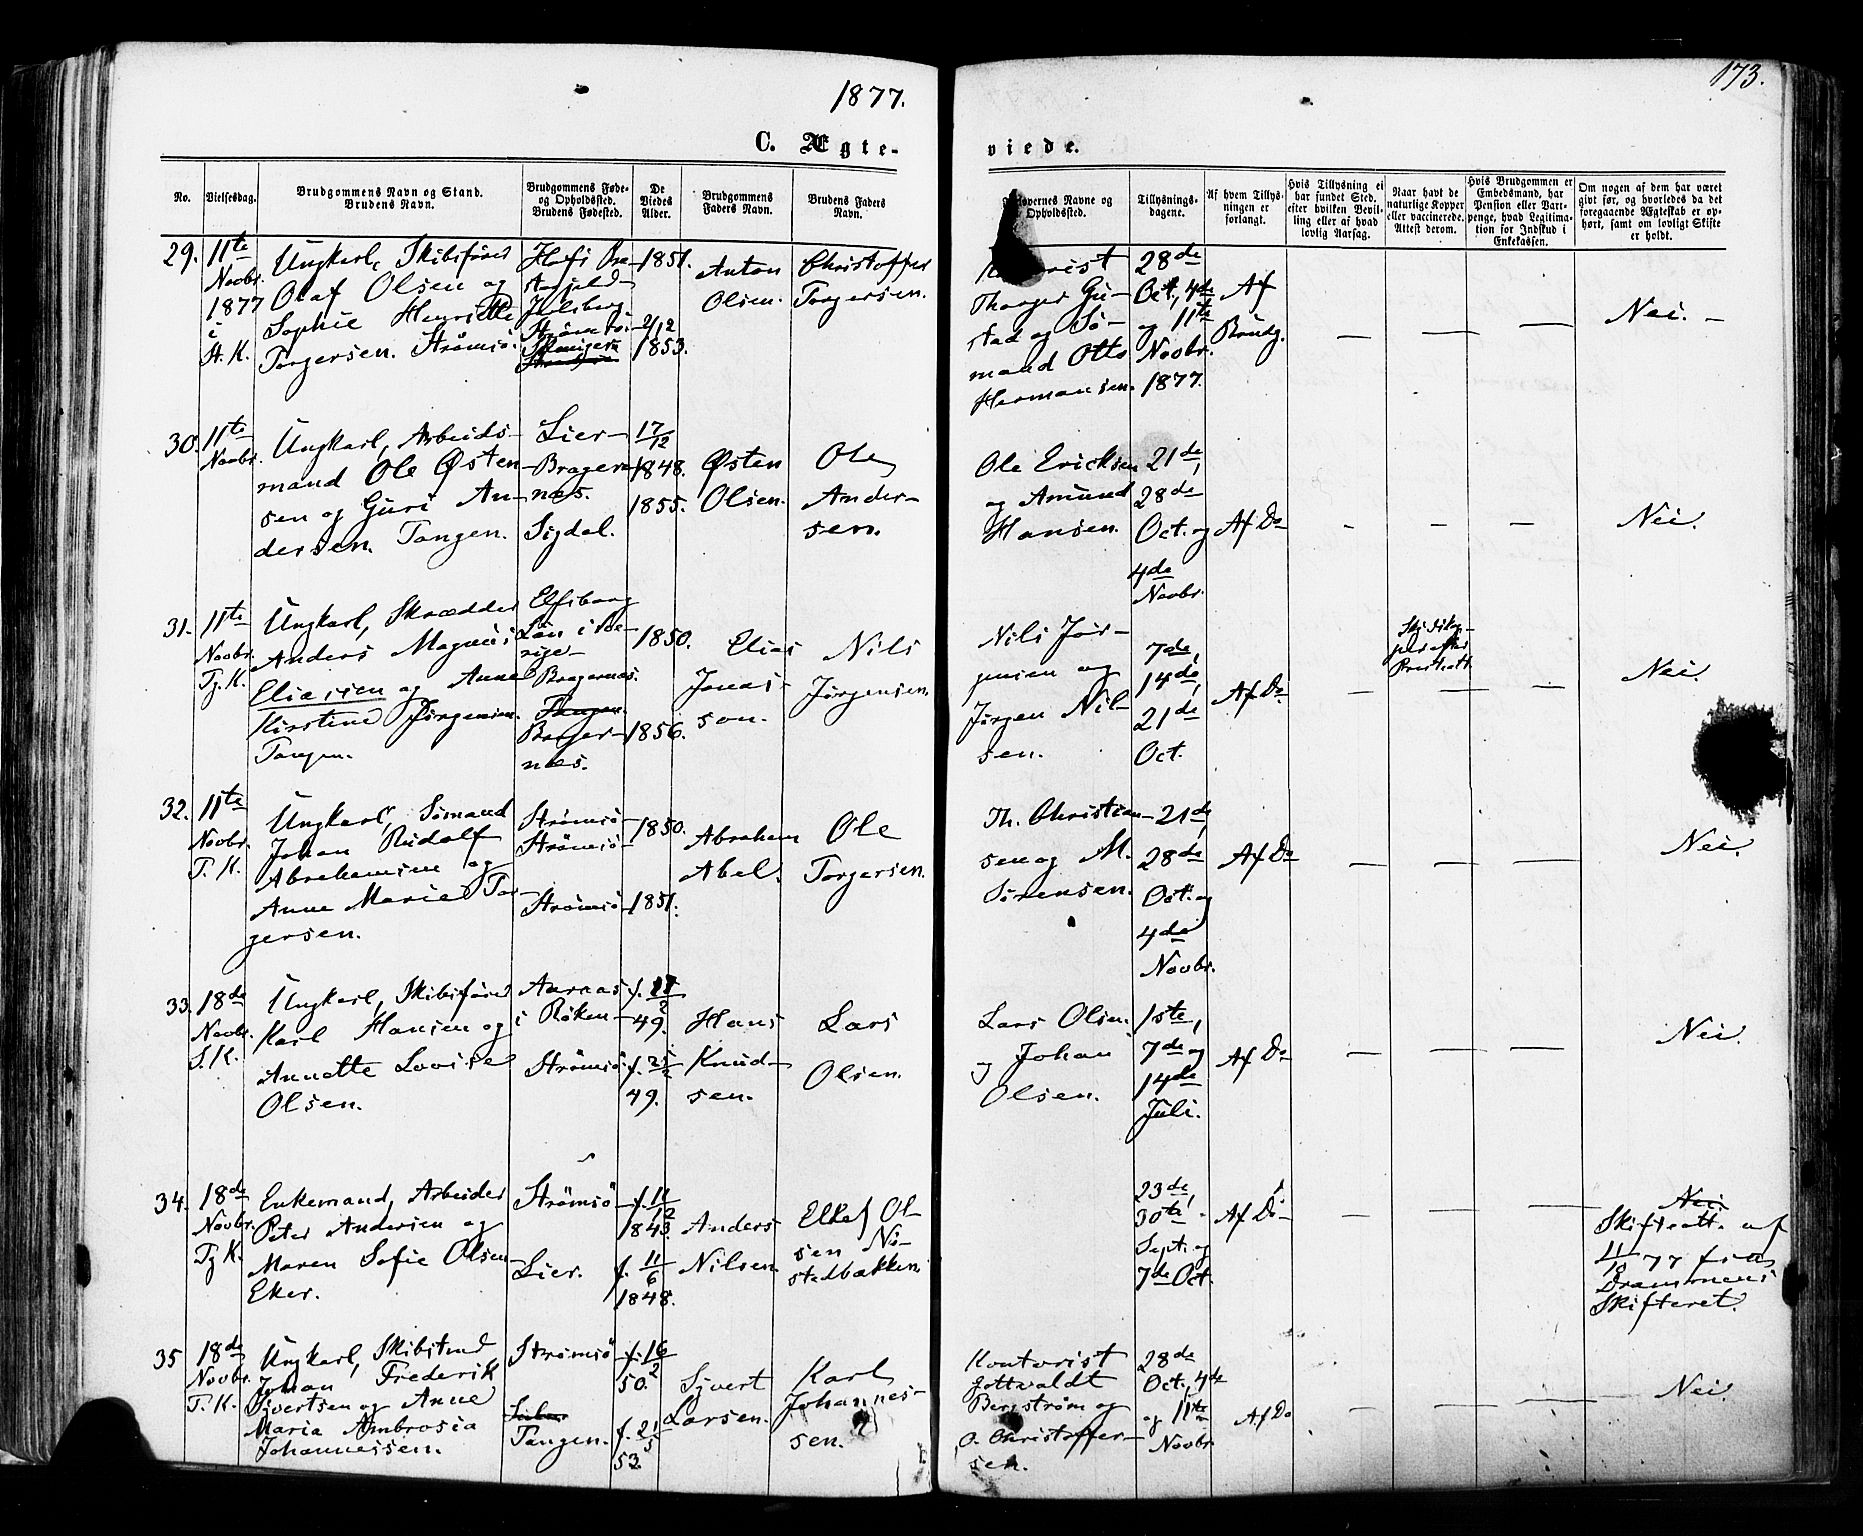 1877.
173.
C. Ægte-
viede.
No.
Vielsesdag.
Brudgommens Navn og Stand.
Brudens Navn.
Brudgommens Føde-
og Opholdssted.
Brudens Fødested.
De
Viedes
Alder.
Brudgommens
Faders Navn.
Brudens Faders
Navn.
Navne og
Opholdssted.
Tillysnings-
dagene.
Af hvem Tillys-
ningen er
forlangt.
Hvis Tillysning ei
har fundet Sted,
efter hvilken Bevil-
ling eller af hvad
lovlig Aarsag.
Naar havt de
naturlige Kopper
eller vaccinerede.
Attest derom.
Hvis Brudgommen er
Embedsmand, har
Pension eller Vart-
penge, hvad Legitima-
tion for Indskud i
Enkekassen.
Om nogen af dem har været
givt før, og hvorledes da det
foregaaende Ægteskab er op-
hørt, samt om lovligt Skifte
er holdt.
29.
11te
Novbr.
1877
i
St. K.
Ungkarl, Skibsfører
Olaf Olsen og
Sophie Henriette
Torgersen. Strømsö.
1851.
2/12
1853.
Anton
Olsen.
Christoffer
Torgersen.
Thorger Gu-
stad og Sö-
mand Otto
Hermansen.
28de
Oct., 4de
og 11te
Novbr.
1877.
Af
Brudg.
— — —
Nei. —
30.
11te
Novbr.
Ungkarl, Arbeids-
mand Ole Østen-
sen og Guri An-
dersen. Tangen.
Lier—
Brager-
næs.
Sigdal.
17/12
1848.
1855.
Østen
Olsen.
Ole
Ander-
sen.
Ole Ericksen
og Amund
Hansen.
21de,
28de
Oct. og
4de
Novbr.
Af Do
— — —
Nei.
31.
11te
Novbr.
Tg. K.
Ungkarl, Skrædder
Anders Magnus
Eliassen og Anne
Kirstine Jörgensen.
Tangen.
Elfsborg
Län i Sve-
rige—
Bragernæs.
Tangen.
Brager-
næs.
1850.
1856.
Elias
Jonas-
son.
Nils
Jörgensen.
Nils Jör-
gensen og
Jörgen Nil-
sen.
7de,
14de,
21de
Oct.
Af Do
— — —
Nei.
32.
11te
Novbr.
T. K.
Ungkarl, Sömand
Johan Rudolf
Abrahamsen og
Anne Marie Tor-
gersen.
Strömsö—
Strömsö—
Strömsö—
1850.
1851.
Abraham
Abel.
Ole
Torgersen.
Th. Christian-
sen og M.
Sörensen.
21de,
28de
Oct. og
4de
Novbr.
Af Do
— — —
Nei.
33.
18de
Novbr.
S. K.
Ungkarl, Skibsfører
Karl Hansen og
Annette Lovise
Olsen.
i Röken—
Strömsö
49.
49.
Hans
Knud-
sen.
Lars
Olsen.
Lars Olsen
og Johan
Olsen.
1ste,
7de og
14de
Juli.
Af Do
— — —
Nei.
34.
18de
Novbr.
Tg K.
Enkemand, Arbeider
Peter Andersen og
Maren Sofie Olsen
Eker.
Strömsö—
Lier.
f. 11/12
1843.
f. 11/6
1848.
Anders
Nilsen.
Ellef Ol-
sen
23de,
30te
Sept. og
7de Oct.
Af Do
— — —
Nei.
Skifteatt. af
77 fra
Drammens
Skifteret.
35
18de
Novbr.
T. K.
Ungkarl, Skibstmd
Johan Frederik
Sjvertsen og Anne
Maria Ambrosia
Johannessen.
Strömsö
Tangen.
f. 16/2
50.
f. 21/5
53.
Sjvert
Larsen.
Karl
Johannes-
sen.
Kontorist
Gottvaldt
Bergström og
O. Christoffer-
sen.
28de
Oct., 4de
og 11te
Novbr.
Af Do
— — —
Nei.